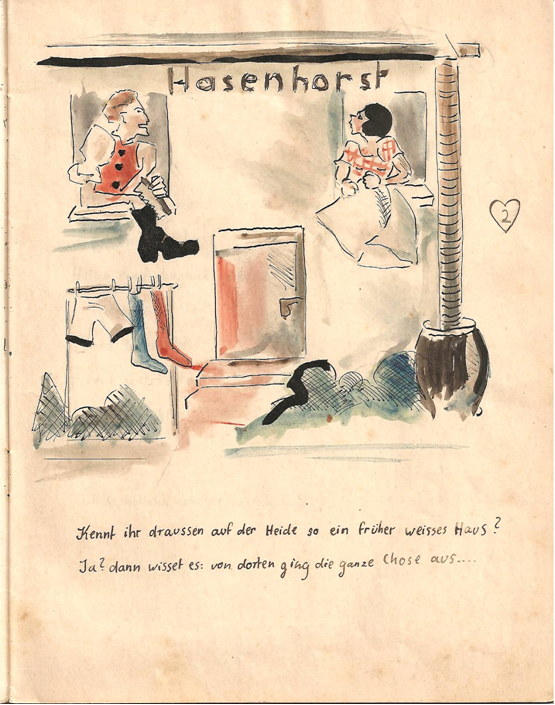 Hasenhorst
2
Kennt ihr draussen auf der Heide so ein früher weisses Haus?
Ja? dann wisset es: von dorten ging die ganze Chose aus....